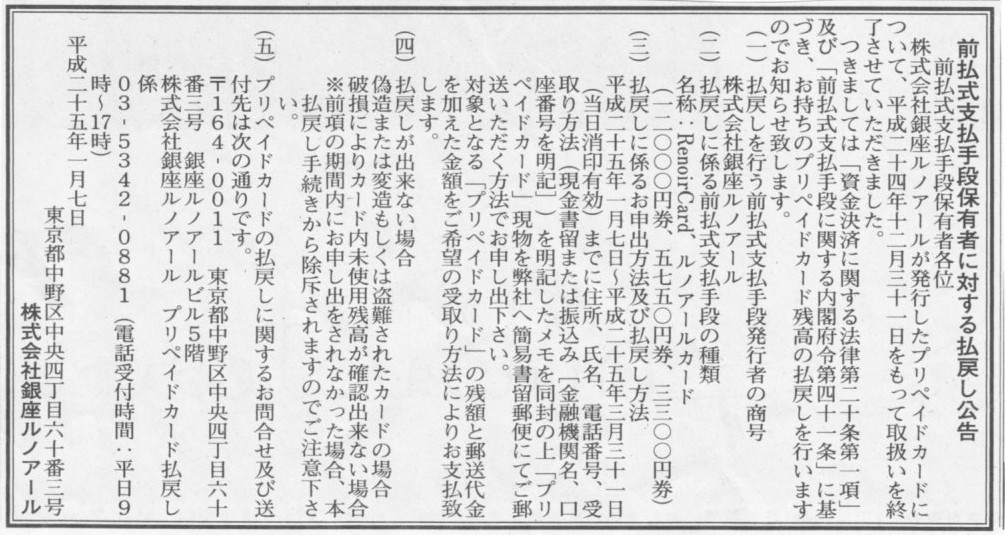 前払式支払手段保有者に対する払戻し公告
前払式支払手段保有者各位
株式会社銀座ルノアールが発行したプリペイドカードに
ついて、平成二十四年十二月三十一日をもって取扱いを終
了させていただきました。
つきましては「資金決済に関する法律第二十条第一項」
及び「前払式支払手段に関する内閣府令第四十一条」に基
づき、お持ちのプリペイドカード残高の払戻しを行います
のでお知らせ致します。
(一) 払戻しを行う前払式支払手段発行者の商号
株式会社銀座ルノアール
(二) 払戻しに係る前払式支払手段の種類
名称:RenoirCard、ルノアールカード
(一二〇〇〇円券、五七五〇円券、三三〇〇円券)
(三) 払戻しに係るお申出方法及び払戻し方法
平成二十五年一月七日～平成二十五年三月三十一日
(当日消印有効)までに住所、氏名、電話番号、受
取り方法(現金書留または振込み[金融機関名、口
座番号を明記])を明記したメモを同封の上「プリ
ペイドカード」現物を弊社へ簡易書留郵便にてご郵
送いただく方法でお申し出下さい。
対象となる「プリペイドカード」の残額と郵送代金
を加えた金額をご希望の受取り方法によりお支払致
します。
(四) 払戻しが出来ない場合
偽造または変造もしくは盗難されたカードの場合
破損によりカード内未使用残高が確認出来ない場合
※前項の期間内にお申し出をされなかった場合、本
払戻し手続きから除斥されますのでご注意下さ
い。
(五) プリペイドカードの払戻しに関するお問合せ及び送
付先は次の通りです。
〒164-0011 東京都中野区中央四丁目六十
番三号 銀座ルノアールビル5階
株式会社銀座ルノアール プリペイドカード払戻し
係
03-5342-0881(電話受付時間:平日9
時～17時)
平成二十五年一月七日
東京都中野区中央四丁目六十番三号
株式会社銀座ルノアール